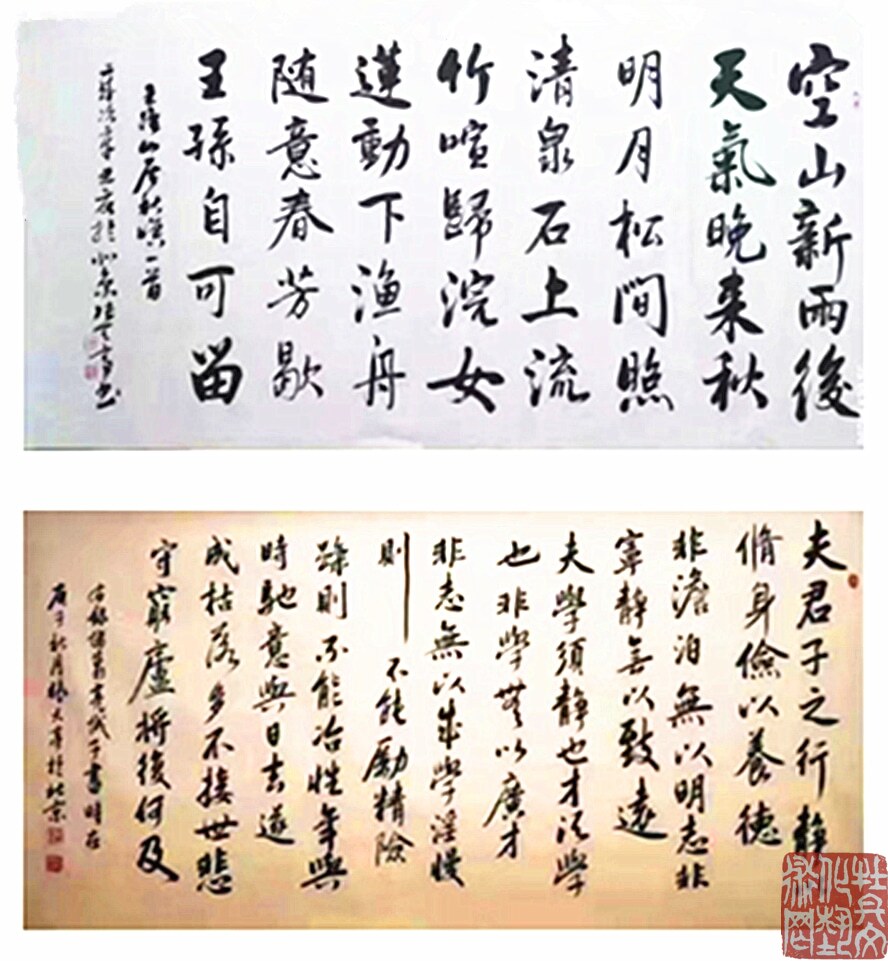 空山新雨後
天氣晚来秋
明月松間照
清泉石上流
竹喧歸浣女
蓮動下渔舟
随意春芳歇
王孫自可留
王維山居秋暝一首
辛丑夜於北京書
夫君子之行静
脩身儉以養德
非澹泊無以明志非
寧静無以致遠
夫學須静也才須學
也非學無以廣才
非志無以成學淫慢
則不能勵精險
躁則不能冶性年與
時馳意與日去遂
成枯落多不接世悲
守窮廬將後何及
右録諸葛亮誡子書時在
庚子秋月於北京
牡丹文化藝術网